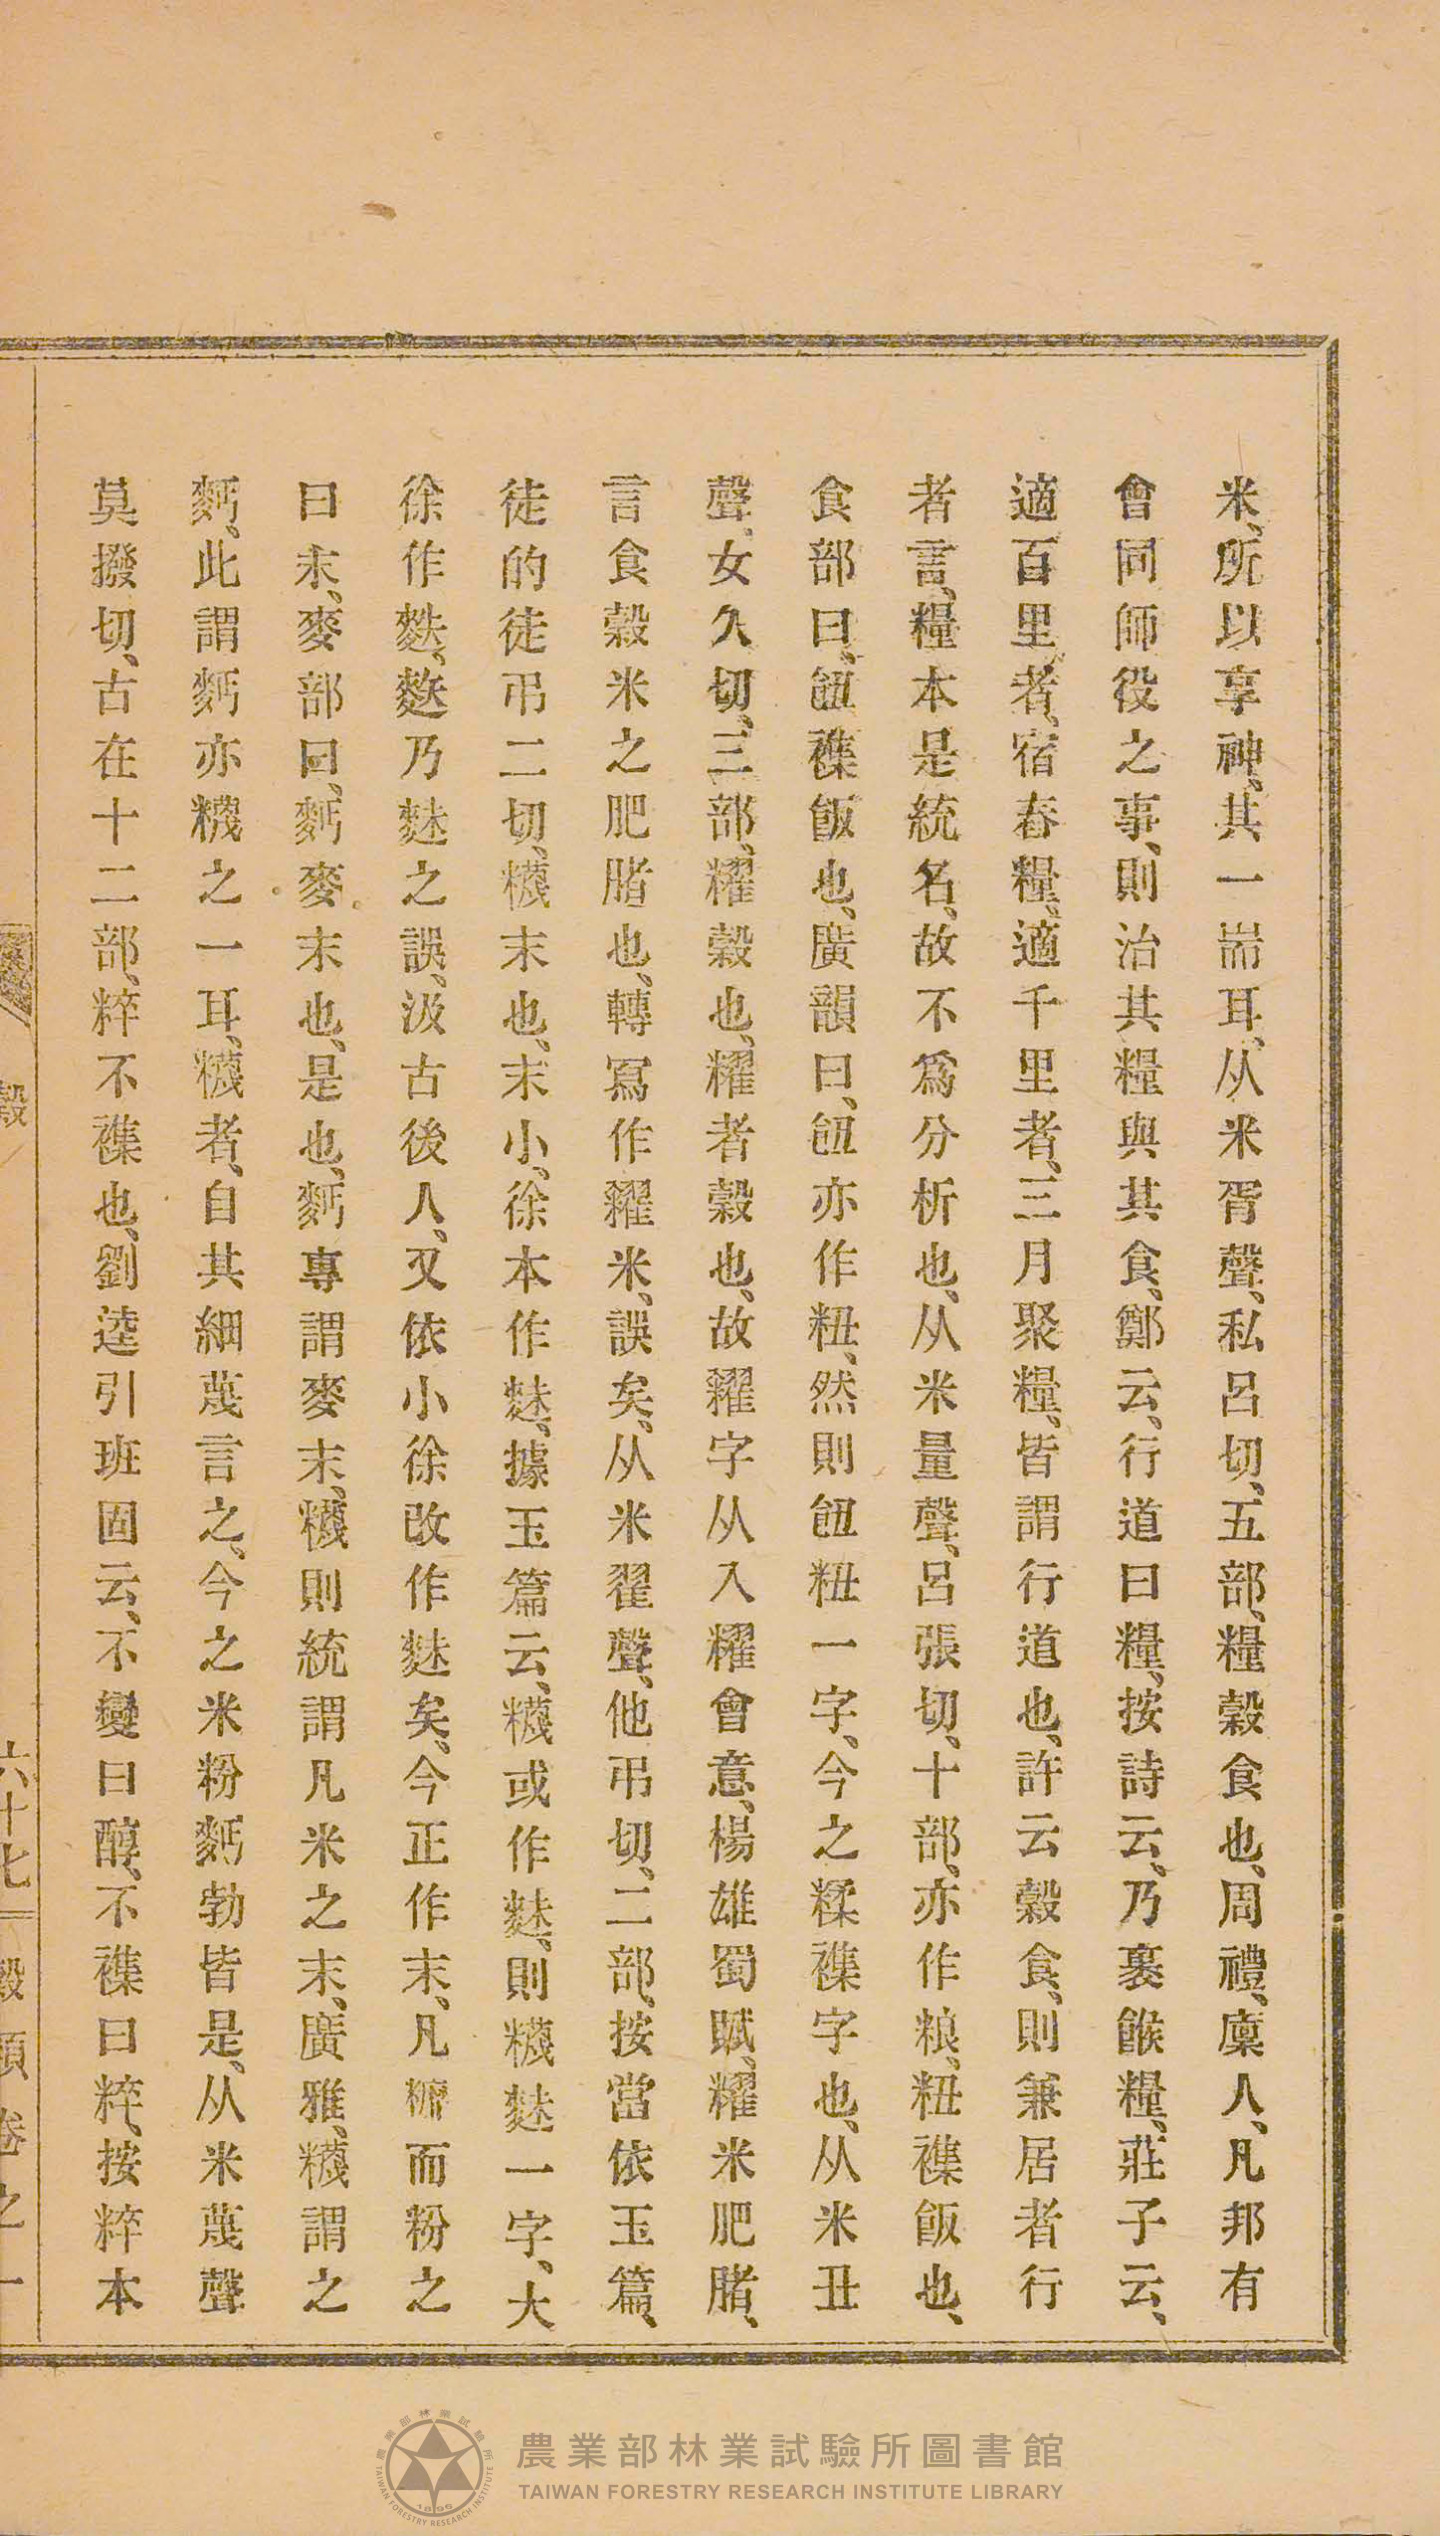 米、所以享神、其一耑耳、从米胥聲、私呂切、五部、糧穀食也、周禮、廩人、凡邦有
會同師役之事、則治其糧與其食、鄭云、行道曰糧、按詩云、乃裹餱糧、莊子云、
適百里者、宿舂糧、適千里者、三月聚糧、皆謂行道也、許云穀食、則兼居者行
者言、糧本是統名、故不爲分析也、从米量聲、呂張切、十部、亦作粮、粈襍飯也、
食部曰、飷襍飯也、廣韻曰、飷亦作粈、然則飷粈一字、今之糅襍字也、从米丑
聲、女久切、三部、糶穀也、糶者穀也、故糴字从入糶會意、楊雄蜀賦、糶米肥腯、
言食穀米之肥腯也、轉寫作糴米、誤矣、从米翟聲、他弔切、二部、按當依玉篇、
徒的徒弔二切、䊳末也、末小、徐本作麩、據玉篇云、䊳或作䴲、則䊳䴲一字、大
徐作麩、麩乃䴲之誤、汲古後人、又依小徐改作䴲矣、今正作末、凡而粉之
曰末、麥部曰、麪麥末也、是也、麪專謂麥末、䊳則統謂凡米之末、廣雅、䊳謂之
麪、此謂麪亦䊳之一耳、䊳者、自其細蔑言之、今之米粉麪勃皆是、从米蔑聲
莫撥切、古在十二部、粹不襍也、劉逵引班固云、不變曰醇、不襍曰粹、按粹本
穀
六十七
穀類 卷之一
農業部林業試驗所圖書館
TAIWAN FORESTRY RESEARCH INSTITUTE LIBRARY